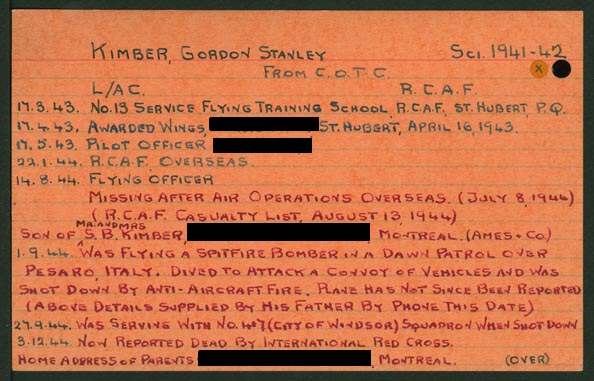 KIMBER, GORDON STANLEY SCI. 1941-42
FROM C.O.T.C.
X
L/AC. R.C.A.F.
17.3.43. NO.13 SERVICE FLYING TRAINING SCHOOL, R.C.A.F., ST. HUBERT, P.Q.
17.4.43. AWARDED WINGS, ST. HUBERT, APRIL 16, 1943.
17.5.43. PILOT OFFICER
22.1.44. R.C.A.F. OVERSEAS.
14.8.44. FLYING OFFICER
MISSING AFTER AIR OPERATIONS OVERSEAS. (JULY 8, 1944)
(R.C.A.F. CASUALTY LIST, AUGUST 13, 1944)
SON OF MR. AND MRS S.B. KIMBER, MONTREAL. (AMES + CO)
1.9.44. WAS FLYING A SPITFIRE BOMBER IN A DAWN PATROL OVER
PESARO, ITALY. DIVED TO ATTACK A CONVOY OF VEHICLES AND WAS
SHOT DOWN BY ANTI-AIRCRAFT FIRE. PLANE HAS NOT SINCE BEEN REPORTED
(ABOVE DETAILS SUPPLIED BY HIS FATHER BY PHONE THIS DATE)
27.9.44. WAS SERVING WITH NO. 417 (CITY OF WINDSOR) SQUADRON WHEN SHOT DOWN
3.12.44. NOW REPORTED DEAD BY INTERNATIONAL RED CROSS.
HOME ADDRESS OF PARENTS MONTREAL. (OVER)